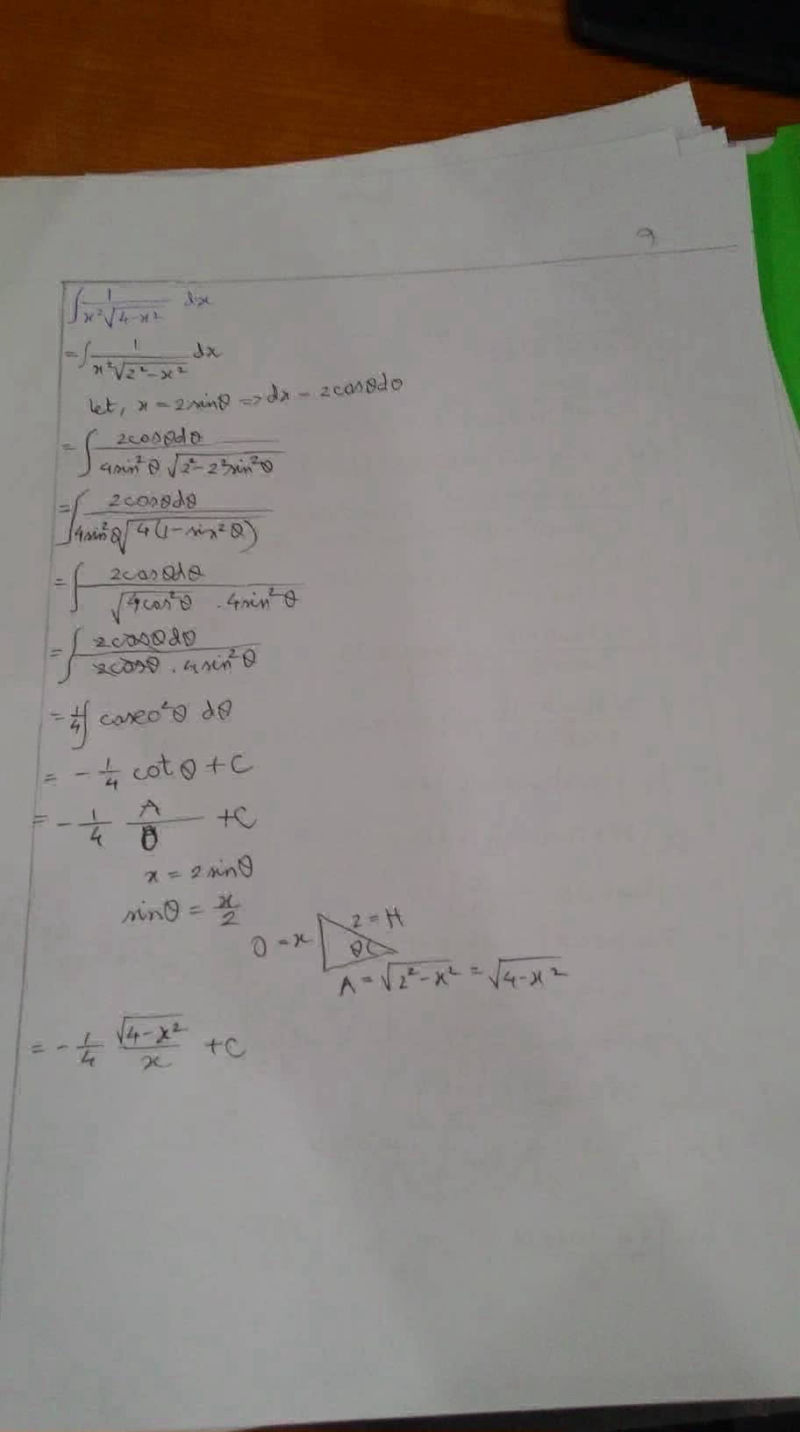 9
∫ 1/(x²√(4-x²)) dx
= ∫ 1/(x²√(2²-x²)) dx
let, x = 2sinθ => dx = 2cosθdθ
= ∫ 2cosθdθ/(4sin²θ √(2²-2²sin²θ))
= ∫ 2cosθdθ/(4sin²θ√(4(1-sin²θ)))
= ∫ 2cosθdθ/(√(4cos²θ) . 4sin²θ)
= ∫ 2cosθdθ/(2cosθ . 4sin²θ)
= 1/4 ∫ cosec²θ dθ
= - 1/4 cotθ + C
= - 1/4 A/O + C
x = 2sinθ
sinθ = x/2
2 = H
O = x
θ
A = √(2²-x²) = √(4-x²)
= - 1/4 √(4-x²)/x + C